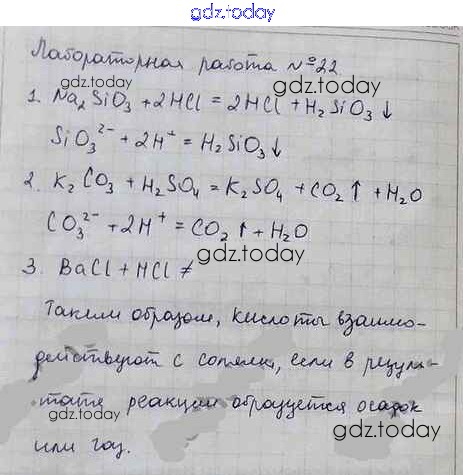 gdz.today
Лабораторная работа №22
gdz.today
gdz.today
1. Na₂SiO₃ + 2HCl = 2HCl + H₂SiO₃↓
SiO₃²⁻ + 2H⁺ = H₂SiO₃↓
2. K₂CO₃ + H₂SO₄ = K₂SO₄ + CO₂↑ + H₂O
CO₃²⁻ + 2H⁺ = CO₂↑ + H₂O
gdz.today
3. BaCl + HCl ≠
Таким образом, кислоты взаимо-
действуют с солями, если в резуль-
тате реакции образуется осадок
gdz.today
gdz.today
или газ.